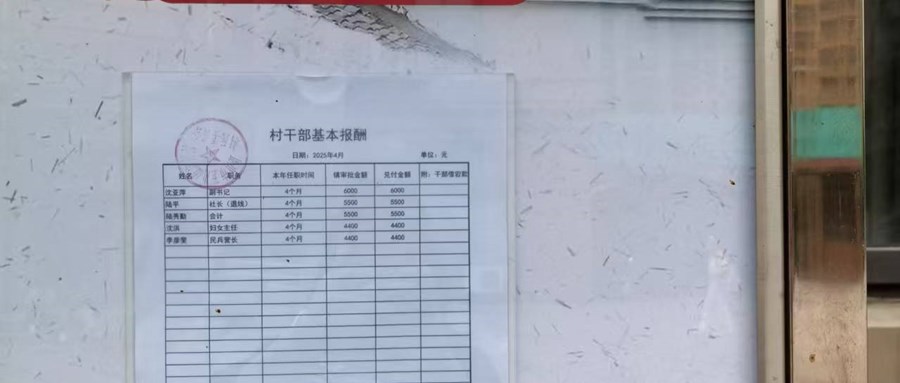 村干部基本报酬
日期：2025年4月 单位：元
姓名 职务 本年任职时间 镇审批金额 兑付金额 附：干部借宕款
沈亚萍 副书记 4个月 6000 6000
陆平 社长（退线） 4个月 5500 5500
陆秀勤 会计 4个月 5500 5500
沈洪 妇女主任 4个月 4400 4400
李彦斐 民兵营长 4个月 4400 4400